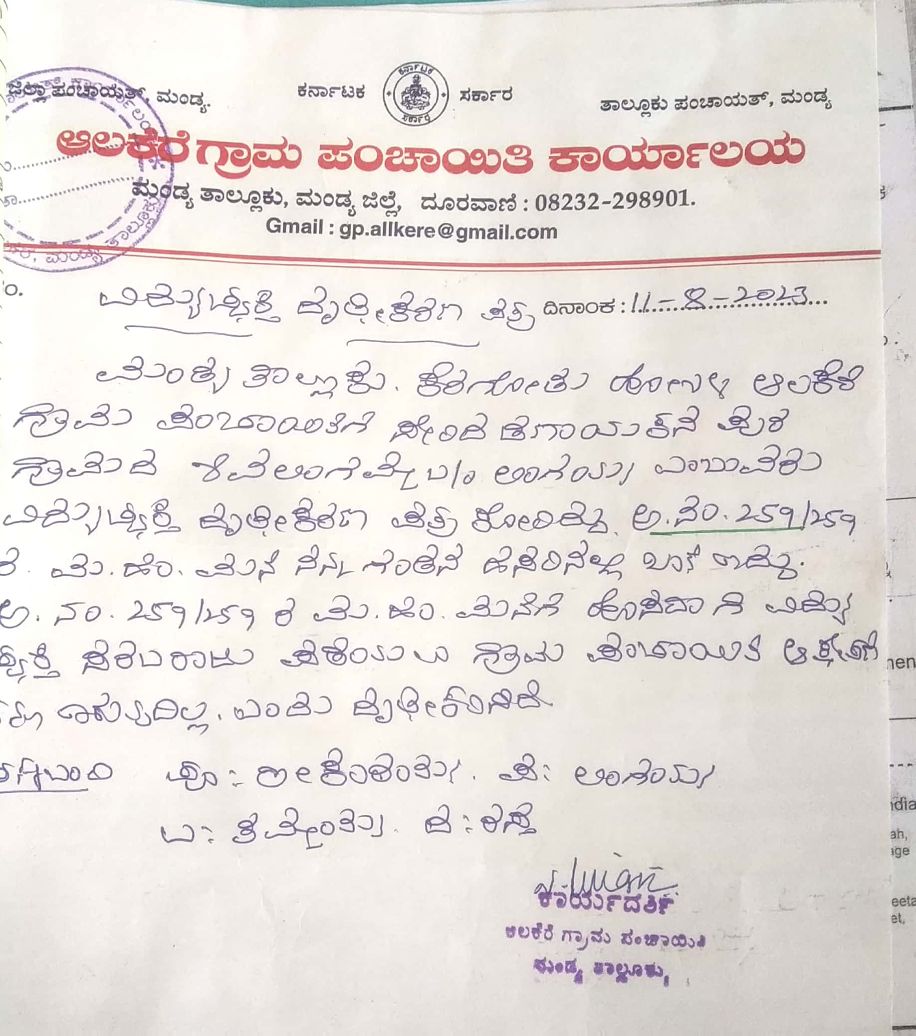 ಜಿಲ್ಲಾ ಪಂಚಾಯತ್, ಮಂಡ್ಯ. ಕರ್ನಾಟಕ ಸರ್ಕಾರ ತಾಲ್ಲೂಕು ಪಂಚಾಯತ್, ಮಂಡ್ಯ
ಆಲಕೆರೆ ಗ್ರಾಮ ಪಂಚಾಯಿತಿ ಕಾರ್ಯಾಲಯ
ಮಂಡ್ಯ ತಾಲ್ಲೂಕು, ಮಂಡ್ಯ ಜಿಲ್ಲೆ, ದೂರವಾಣಿ : 08232-298901.
Gmail : gp.allkere@gmail.com
ವಿದ್ಯುಚ್ಛಕ್ತಿ ದೃಢೀಕರಣ ಪತ್ರ ದಿನಾಂಕ : 11-8-2023
ಮಂಡ್ಯ ತಾಲ್ಲೂಕು. ಕೆರಗೋಡು ಹೋಬಳಿ ಆಲಕೆರೆ
ಗ್ರಾಮ ಪಂಚಾಯಿತಿಗೆ ಸೇರಿದ ಪುರ
ಗ್ರಾಮದ ಶಿವಲಿಂಗಮ್ಮ ಲಿಂಗಯ್ಯ ಎಂಬುವರು
ವಿದ್ಯುಚ್ಛಕ್ತಿ ದೃಢೀಕರಣ ಪತ್ರ ಕೋರಿದ್ದು ಅ.ನಂ. 259/259
ರ. ಮ.ಹಂ. ಮನೆ ನನ್ನ ಗಂಡನ ಹೆಸರಿನಲ್ಲಿ ಖಾತೆ ಇದ್ದು.
ಅ. ನಂ. 259/259 ರ ಮ.ಹಂ. ಮನೆಗೆ ಹೊಸದಾಗಿ ವಿದ್ಯು
ಚ್ಛಕ್ತಿ ಸರಬರಾಜು ಪಡೆಯಲು ಗ್ರಾಮ ಪಂಚಾಯಿತಿ ಆಕ್ಷೇಪಣೆ
ಇರುವುದಿಲ್ಲ. ಎಂದು ದೃಢೀಕರಿಸಿದೆ
ಚಕ್ಕುಬಂದಿ ಪೂ: ಪ: ಲಿಂಗಯ್ಯ
ಉ: ತಿಮ್ಮಯ್ಯ. ದ: ರಸ್ತೆ
ಕಾರ್ಯದರ್ಶಿ
ಆಲಕೆರೆ ಗ್ರಾಮ ಪಂಚಾಯಿತಿ
ಮಂಡ್ಯ ತಾಲ್ಲೂಕು